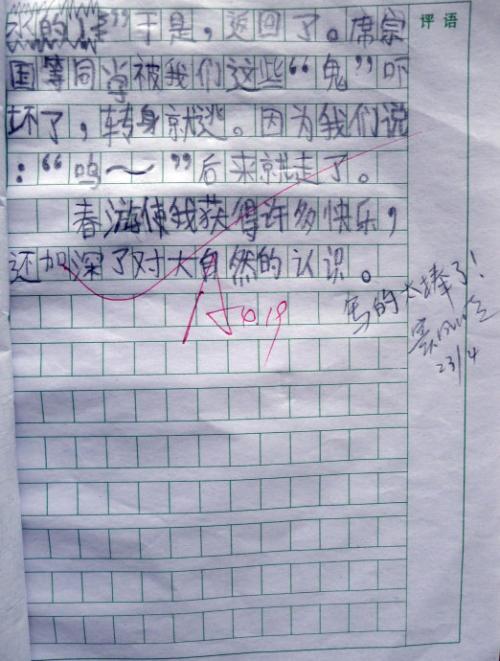 评语
的"于是,返回了。席宗
国等同学被我们这些"鬼"吓
坏了,转身就逃。因为我们说
:"呜~~"后来就走了。
春游使我获得许多快乐,
还加深了对大自然的认识。
写的太棒了!
23/4